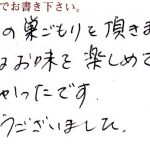 でお書き下さい。
の巣ごもりを頂きま
なお味を楽しめて
かったです。
うございました。